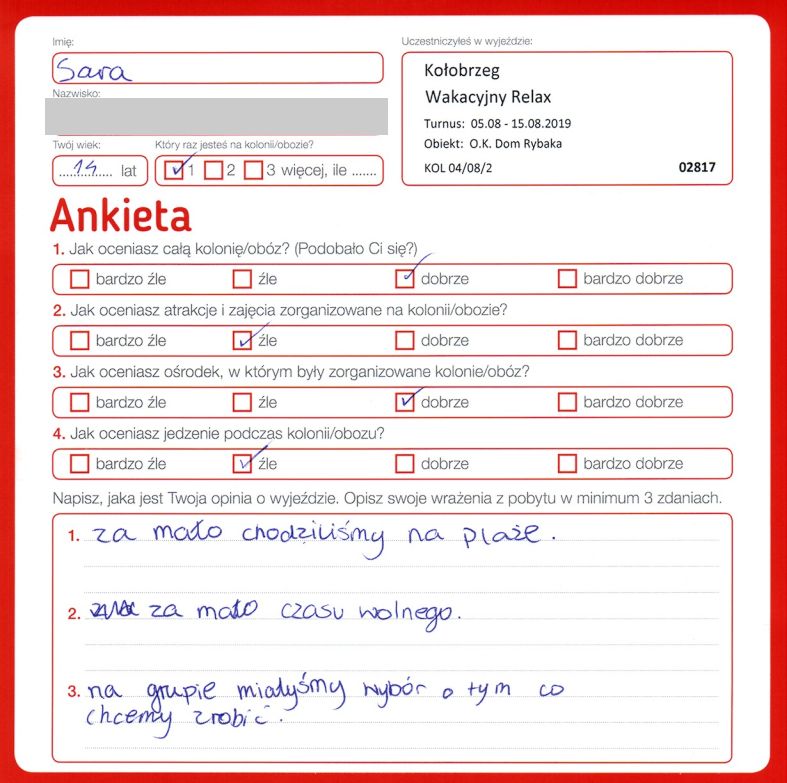 Imię:
Uczestniczyłeś w wyjeździe:
Sara
Kołobrzeg
Nazwisko:
Wakacyjny Relax
Turnus: 05.08 - 15.08.2019
Twój wiek:
Który raz jesteś na kolonii/obozie?
Obiekt: O.K. Dom Rybaka
14 lat
1 2 3 więcej, ile .......
KOL 04/08/2 02817
Ankieta
1. Jak oceniasz całą kolonię/obóz? (Podobało Ci się?)
bardzo źle źle dobrze bardzo dobrze
2. Jak oceniasz atrakcje i zajęcia zorganizowane na kolonii/obozie?
bardzo źle źle dobrze bardzo dobrze
3. Jak oceniasz ośrodek, w którym były zorganizowane kolonie/obóz?
bardzo źle źle dobrze bardzo dobrze
4. Jak oceniasz jedzenie podczas kolonii/obozu?
bardzo źle źle dobrze bardzo dobrze
Napisz, jaka jest Twoja opinia o wyjeździe. Opisz swoje wrażenia z pobytu w minimum 3 zdaniach.
1. za mało chodziliśmy na plaże.
2. za mało czasu wolnego.
3. na grupie miałyśmy wybór o tym co
chcemy zrobić.